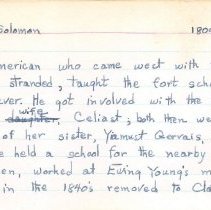 Solomon 180
merican who came west with
stranded, taught the fort scho
ver. He got involved with the
wife
daughter, Celiast; both then we
of her sister, Yiamust Gervais,
e held a school for the nearby
en, worked at Ewing Young's m
in the 1840's removed to Cla